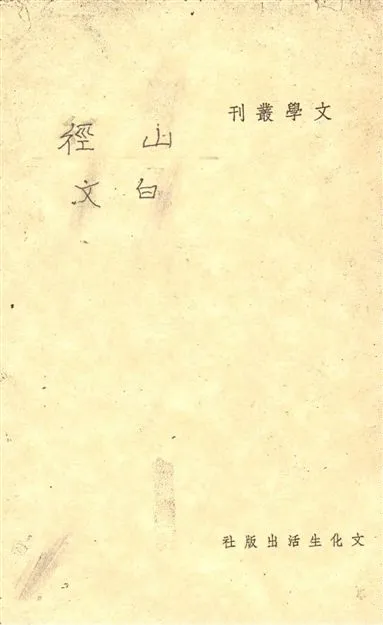 文學叢刊
山徑
白文
文化生活出版社